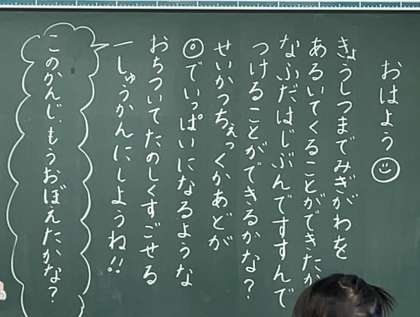 おはよう
きょうしつまでみぎがわを
あるいてくることができたか
なふだはじぶんですすんで
つけることができるかな?
せいかつちぇっくがあとが
◎でいっぱいになるような
おちついてたのしくすごせる
一しゅうかんにしようね!!
このかんじ、もうおぼえたかな?